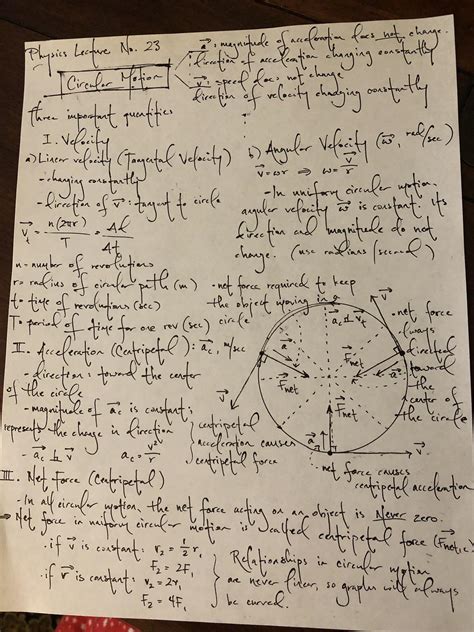 Physics Lecture No. 23
Circular Motion
a⃗: magnitude of acceleration does not change.
direction of acceleration changing constantly
v⃗: speed does not change
direction of velocity changing constantly
Three important quantities
I. Velocity
a) Linear velocity (Tangental Velocity)
- changing constantly
- direction of v⃗: tangent to circle
v⃗t = n(2πr)/T = Δd/Δt
n - number of revolutions
r = radius of circular path (m)
t = time of revolutions (sec)
T = period of time for one rev (sec)
b) Angular Velocity (ω⃗, rad/sec)
v⃗ = ωr ⇒ ω⃗ = v⃗/r
- In uniform circular motion,
angular velocity ω⃗ is constant. its
direction and magnitude do not
change. (use radians/second)
- net force required to keep
the object moving in a
circle
II. Acceleration (Centripetal): a⃗c, m/sec
- direction: toward the center
of the circle
- magnitude of a⃗c is constant;
represents the change in direction
- a⃗c ⊥ v⃗
ac = v²/r
centripetal
acceleration causes
centripetal force
v⃗
a⃗c ⊥ v⃗t
a⃗
F⃗net
v⃗
a⃗
F⃗net
a⃗
F⃗net
v⃗
- net force
always
directed
toward
the
center of
the circle
net force causes
centripetal acceleration
III. Net force (Centripetal)
- In all circular motion, the net force acting on an object is Never zero.
Net force in uniform circular motion is called centripetal force (F⃗net,c)
- if v⃗ is constant: r₂ = ½ r₁
F₂ = 2F₁
- if r⃗ is constant: v₂ = 2v₁
F₂ = 4F₁
Relationships in circular motion
are never linear, so graphs will always
be curved.